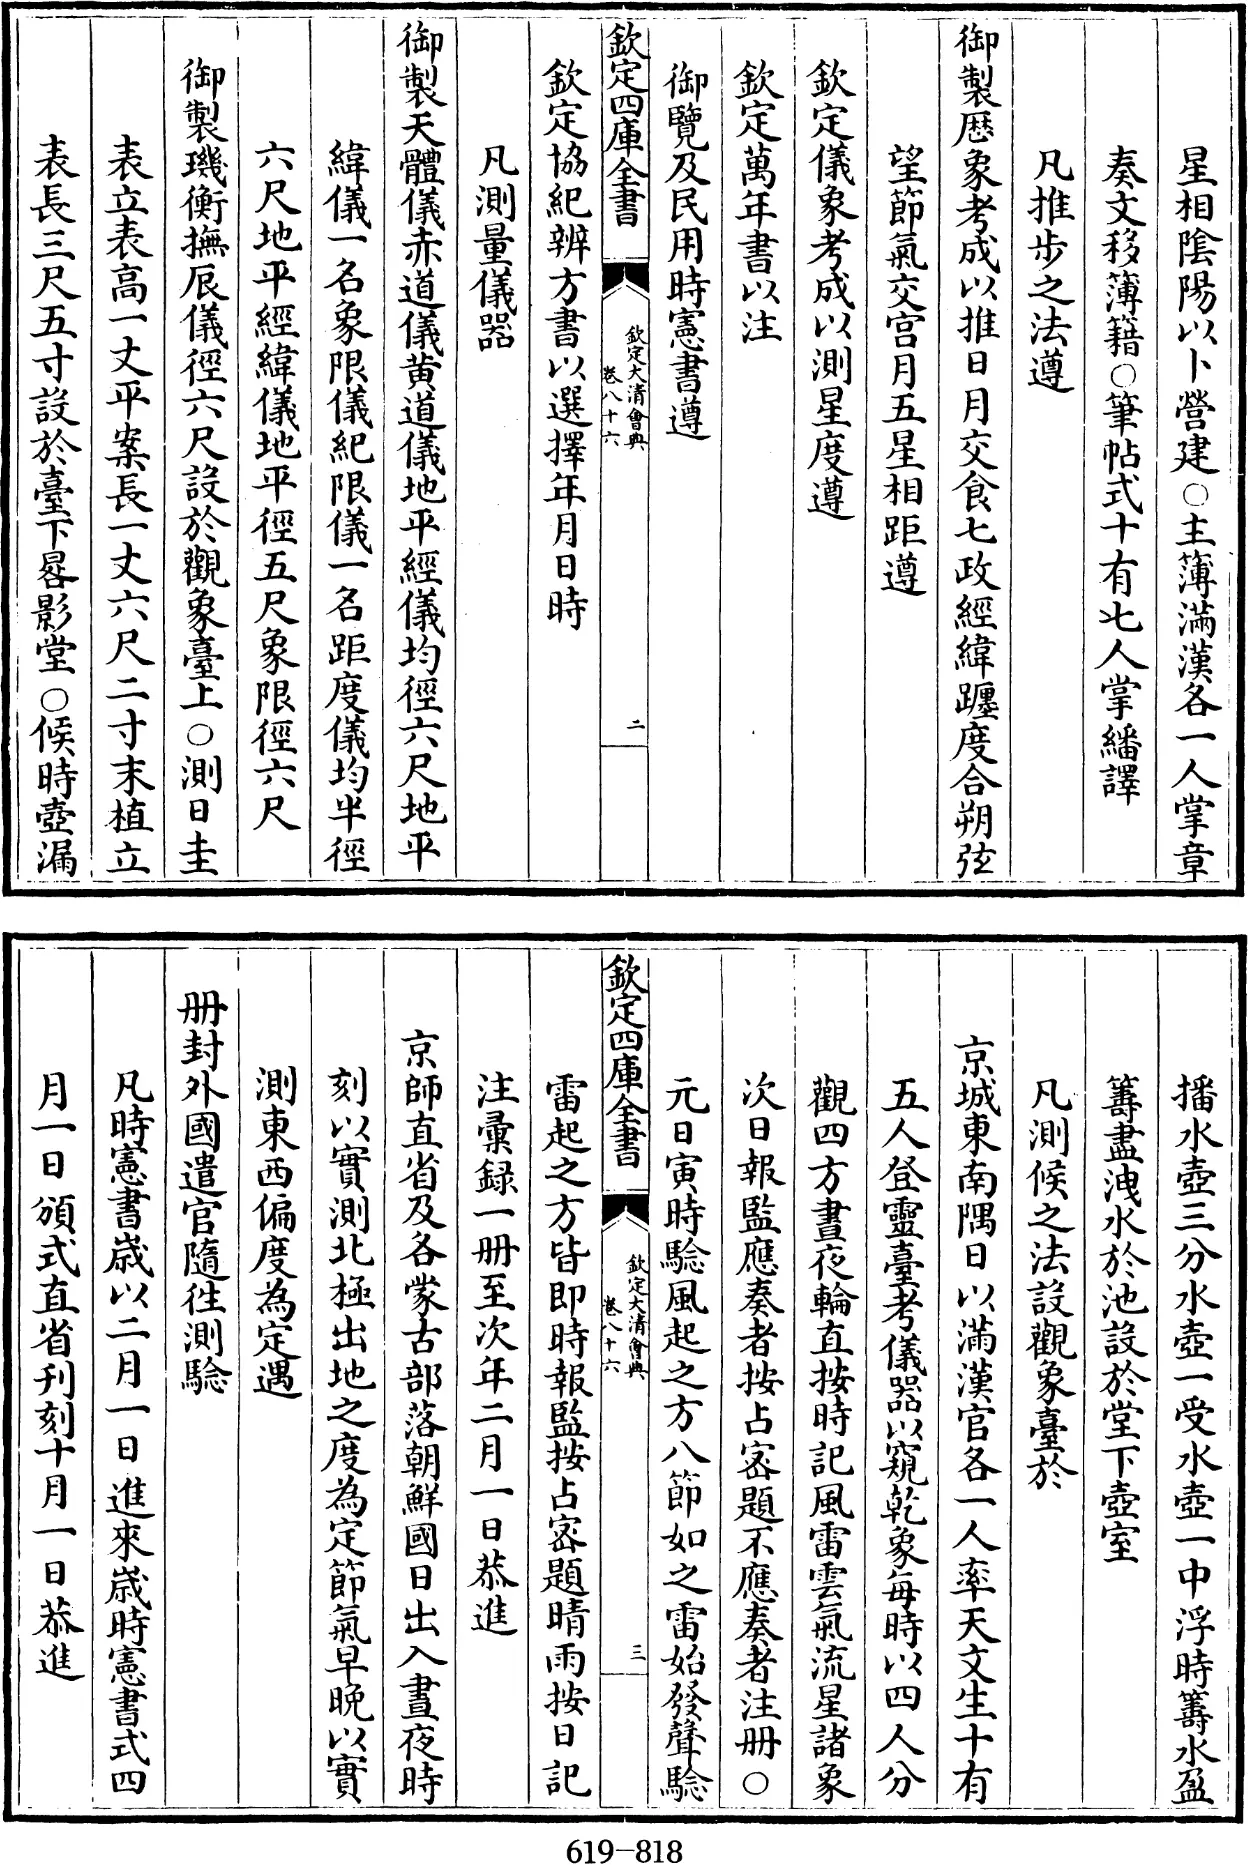 星相隂陽以卜營建○主簿滿漢各一人掌章
奏文移簿籍○筆帖式十有七人掌繙譯
凡推步之法遵
御製厯象考成以推日月交食七政經緯躔度合朔弦
望節氣交宫月五星相距遵
欽定儀象考成以測星度遵
欽定萬年書以注
御覽及民用時憲書遵
欽定四庫全書
欽定大清會典
卷八十六
二
欽定協紀辨方書以選擇年月日時
凡測量儀器
御製天體儀赤道儀黄道儀地平經儀均徑六尺地平
緯儀一名象限儀紀限儀一名距度儀均半徑
六尺地平經緯儀地平徑五尺象限徑六尺
御製璣衡撫辰儀徑六尺設於觀象臺上○測日圭
表立表高一丈平案長一丈六尺二寸末植立
表長三尺五寸設於臺下晷影堂○候時壺漏
播水壺三分水壺一受水壺一中浮時籌水盈
籌盡洩水於池設於堂下壺室
凡測候之法設觀象臺於
京城東南隅日以滿漢官各一人率天文生十有
五人登靈臺考儀器以窺乾象每時以四人分
觀四方晝夜輪直按時記風雷雲氣流星諸象
次日報監應奏者按占密題不應奏者注冊○
元日寅時驗風起之方八節如之雷始發聲驗
欽定四庫全書
欽定大清會典
卷八十六
三
雷起之方皆即時報監按占密題晴雨按日記
注彚録一冊至次年二月一日恭進
京師直省及各蒙古部落朝鮮國日出入晝夜時
刻以實測北極出地之度為定節氣早晚以實
測東西偏度為定遇
冊封外國遣官隨往測驗
凡時憲書嵗以二月一日進來嵗時憲書式四
月一日頒式直省刊刻十月一日恭進
619-818